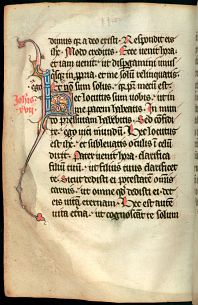 dimus q̄ a deo existi. Respondit eis
ihs. Modo creditis. Ecce uenit hora
et iam uenit. ut dispergamini unus
q̄sq; in ꝓpria. et me solū relinquatis.
et nō sum solus. q̄ pr̄ mecū est.
Johis
xvij
Hec locutus sum uobis. ut in
me pacem habeatis. In mun
do pressuram habebitis. Sed confidi
te. ego uici mundū. Hec locutus
est ihs. et subleuatis oculis ī celū
dixit. Pater uenit hora. clarifica
filiū tuū. ut filius tuus clarificet
te. Sicut dedisti ei potestatē omīs
carnis. ut omne qd̄ dedisti ei. det
eis uitā eternam. Hec est autem
uita etna. ut cognoscāt te solum